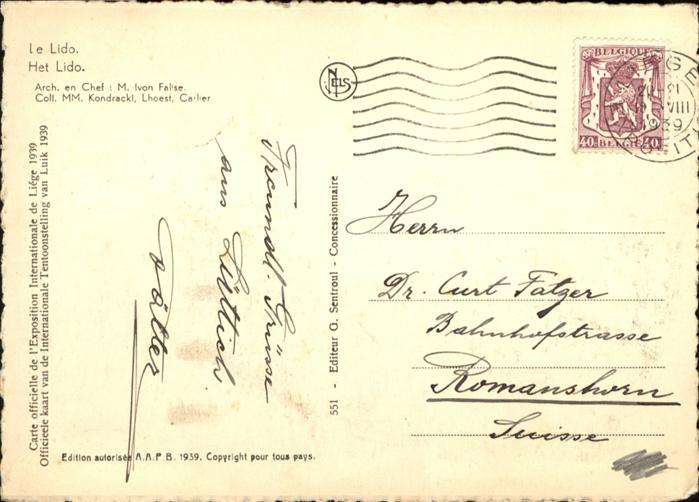 Le Lido.
Het Lido.
Arch. en Chef : M. Ivon Falise.
Coll. MM. Kondracki, Lhoest, Carlier
NELS
BELGIQUE
40 BELGIË 40
21
VIII
39
Freundl. Grüsse
aus Lüttich
Carte officielle de l'Exposition Internationale de Liége 1939
Officieele kaart van de Internationale Tentoonstelling van Luik 1939
551 - Editeur G. Sentroul - Concessionnaire
Herrn
Dr. Curt Fatzer
Bahnhofstrasse
Romanshorn
Suisse
Edition autorisée A.A.P B. 1939. Copyright pour tous pays.